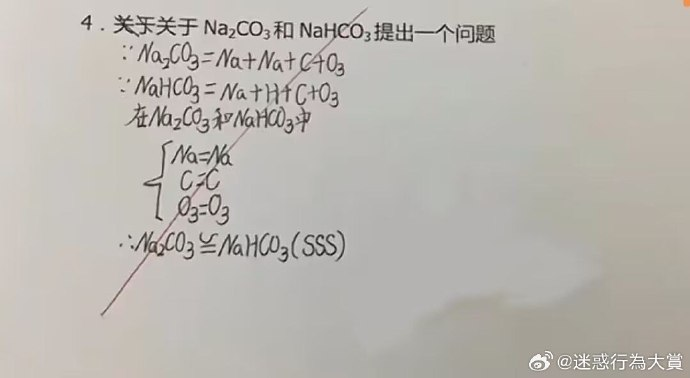 4．关于关于 Na₂CO₃和 NaHCO₃提出一个问题
∵Na₂CO₃=Na+Na+C+O₃
∵NaHCO₃=Na+H+C+O₃
在Na₂CO₃和NaHCO₃中
Na=Na
C=C
O₃=O₃
∴Na₂CO₃≌NaHCO₃(SSS)
@迷惑行為大賞